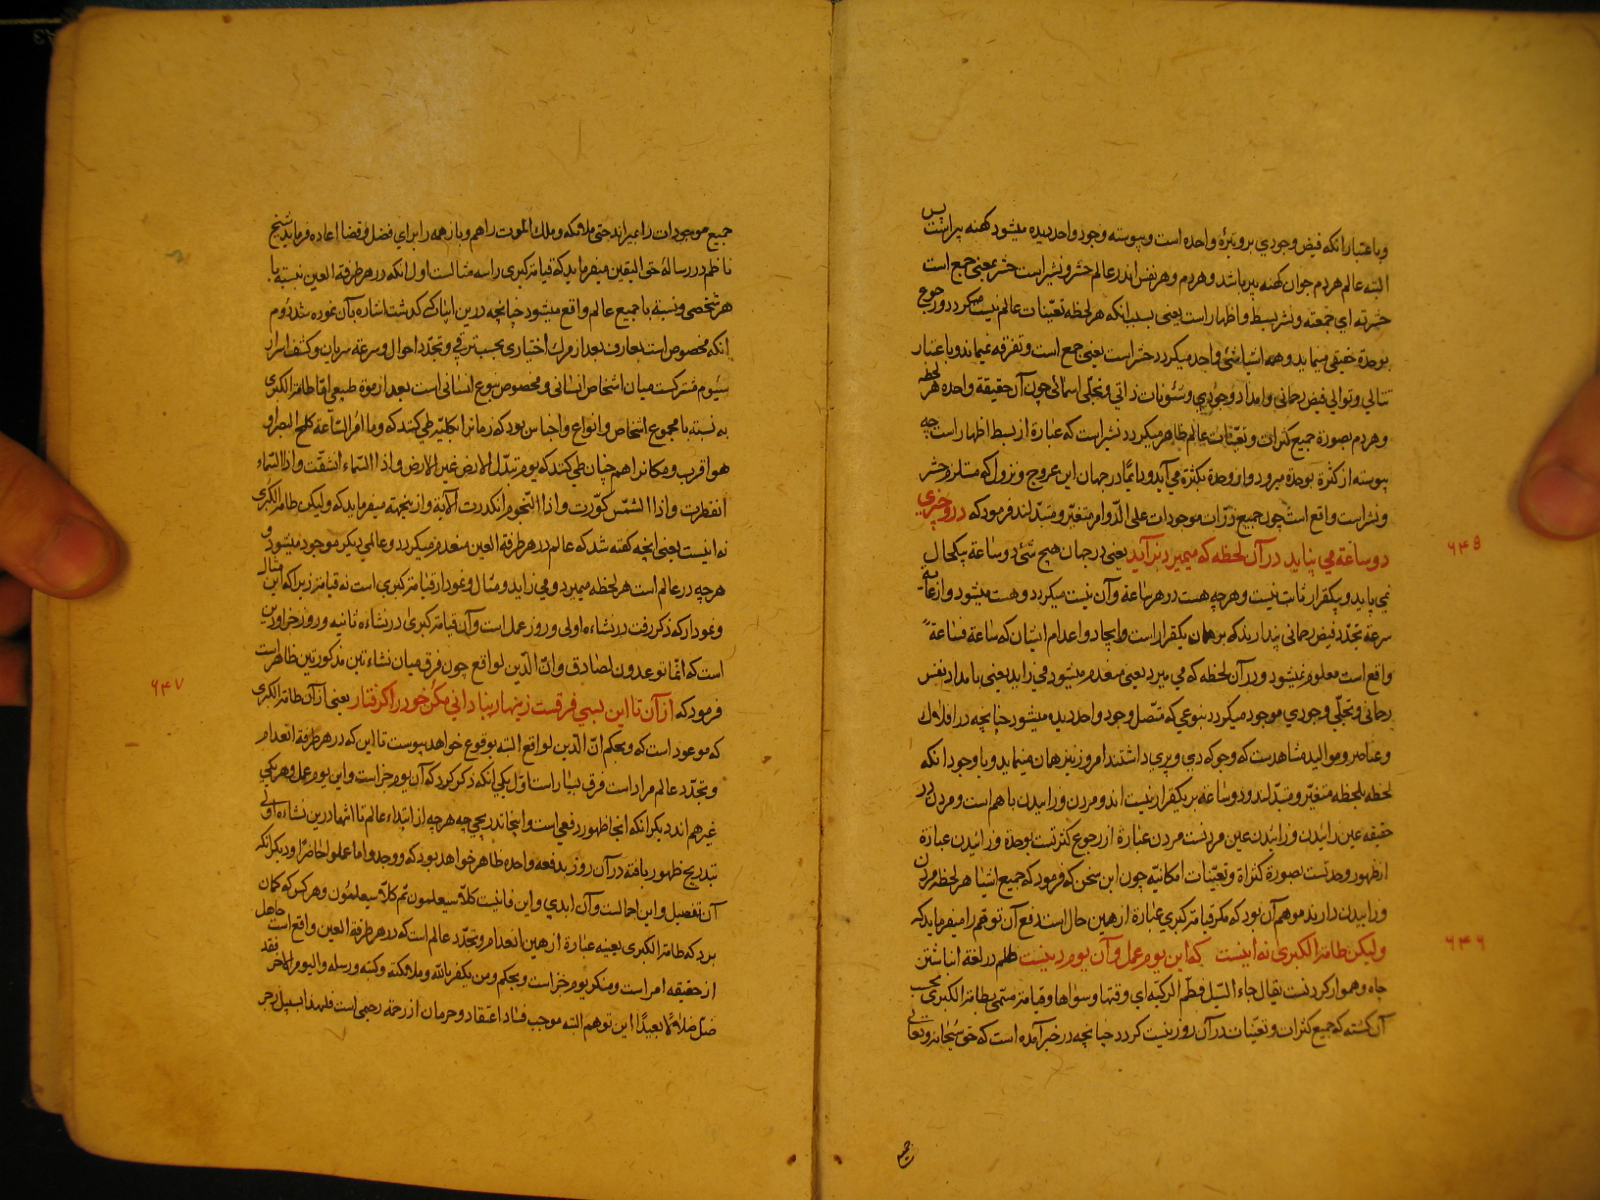 و باعتبار آنکه فیض وجودی برویتره واحده است و پیوسته وجود واحد دیده میشود کهنه پیر است پس
البته عالم هر دم جوان کهنه پیر باشد و هر دم و هر نفس اندر عالم حشر و نشر است حشر بمعنی جمع است
حشرته ای جمعته و نشر بسط و اظهار است یعنی بسبب آنکه هر لحظه تعینات عالم نیست میکردد و رجوع
بوحدة حقیقی مینماید و همه اشیا شئ واحد میکردد حشر است یعنی جمع است و تفرقه نمیماند و باعتبار
تتالی و توالی فیض رحمانی و امداد وجودی و شئونات ذاتی و تجلی اسمائی چون آن حقیقة واحده هر لحظه
و هر دم بصورة جمیع کثرات و تعینات عالم ظاهر میکردد نشر است که عبارة از بسط اظهار است چه
پیوسته از کثرة بوحدة میرود و از وحدة بکثرة می آید و دایما در جهان این عروج و نزول که مستلزم حشر
و نشر است واقع است چون جمیع ذرات موجودات علی الدوام متغیر و متبدلند فرمود که درو چیزی
دو ساعة می نپاید در آن لحظه که میمیرد بزاید یعنی در جهان هیچ شئ دو ساعة بیکحال
نمی پاید و بیکقرار ثابت نیست و هر چه هست در هر ساعة و آن نیست میکردد و هست میشود و از غایة
سرعة تجدد فیض رحمانی پندارند که بر همان یکقرار است و ایجاد و اعدام ایشان که ساعة فساعة
واقع است معلوم نمیشود و در آن لحظه که می میرد یعنی منعدم میشود می زاید یعنی بامداد نفس
رحمانی و تجلی وجودی موجود میکردد بنوعی که متصل وجود واحد دیده میشود چنانچه در افلاک
و عناصر و موالید مشاهدست که وجو که دی و پری داشتند امروز نیز همان مینماید و با وجود آنکه
لحظه بلحظه متغیر و متبدلند و دو ساعة بر یکقرار نیست اند و مردن و زاییدن با هم است و مردن در
حقیقه عین زائیدن و زائیدن عین مردنست مردن عبارة از رجوع کثرتست بوحدة و زائیدن عبارة
از ظهور وحدتست بصورة کثراة و تعینات امکانیه چون این سخن که فرمود که جمیع اشیا هر لحظه مردن
و زاییدن دارند موهم آن بود که مکر قیامة کبری عبارة از همین حال است دفع آن توهم را میفرماید که
ولیکن طامة الکبری نه اینست که این یوم عمل و آن یوم دینست طم در لغة انباشتن
چاه و هموار کردنست یقال جاء السیل فطم الرکیة ای وقتها و سواها و قیامة مسمی بطامة الکبری بجهت
آن کشته که جمیع کثرات و تعینات در آن روز نیست کردد چنانچه در خبر آمده است که حق سبحانه و تعالی
جمیع
۶۴۵
۶۴۶
جمیع موجودات را بمیراند حتی ملائکه و ملک الموت را هم و باز همه را برای فصل و قضا اعاده فرماید شیخ
ناظم در رسالۀ حق الیقین میفرماید که قیامة کبری را سه مثالست اول آنکه در هر طرفة العین نسبة با
هر شخصی و نسبة با جمیع عالم واقع میشود چنانچه درین ابیات که گذشت اشاره بآن نموده شد دوم
آنکه مخصوص است بعارف بعد از مرک اختیاری بحسب ترقی و تجدد احوال و سرعة سریان و کشف اسرار
سیوم مشترکست میان اشخاص انسانی و مخصوص بنوع انسانی است بعد از موة طبیعی اما طامة الکبری
به نسبة با مجموع اشخاص و انواع و اجناس بود که زمانرا بکلیة طی کنند که و ما امر الساعة کلمح البصر او
هو اقرب و مکانرا هم چنان طی کنند که یوم تبدل الارض غیر الارض و اذا السماء انشقت و اذا السماء
انفطرت و اذا الشمس کورت و اذا النجوم انکدرت الآیة و ازینجهة میفرماید که ولیکن طامة الکبری
نه اینست یعنی آنچه کفته شد که عالم در هر طرفة العین منعدم میکردد و عالمی دیکر موجود میشود و
هر چه در عالم است هر لحظه میمیرد و می زاید و مثال و نمودار قیامة کبری است نه قیامة زیرا که این مثال
و نمودار که ذکر رفت در نشاءه اولی و روز عمل است و آن قیامة کبری در نشاءه ثانیه و روز جزا و دین
است که انما توعدون لصادق و ان الدین لواقع چون فرق میان نشاءتین مذکورتین ظاهر است
فرمود که از آن تا این بسی فرقست زینهار بنادانی مکن خود را کرفتار یعنی از آن طامة الکبری
که موعود است که و بحکم ان الدین لواقع البته بوقوع خواهد پیوست تا این که در هر طرفة انعدام
و تجدد عالم مراد است فرق بسیار است اول یکی آنکه ذکر کرد که آن یوم جزا است و این یوم عمل و هر یکی
غیر هم اند دیکر آنکه آنجا ظهور دفعی است و اینجا تدریجی چه هر چه از ابتداء عالم تا انتها درین نشاءه اولی
بتدریج ظهور یافته در آن روز بدفعه واحده ظاهر خواهد بود که و وجدوا ما عملوا حاضرا و دیکر آنکه
آن تفصیل و این اجمالست و آن ابدی و این فانیست کلا سیعلمون ثم کلا سیعلمون و هر کس که کمان
برد که طامة الکبری بعینه عبارة از همین انعدام و تجدد عالم است که در هر طرفة العین واقع است جاهل
از حقیقه امر است و منکر یوم جزا است و بحکم و من یکفر بالله و ملائکته و کتبه و رسله و الیوم الآخر فقد
ضل ضلالا بعیدا این توهم البته موجب فساد اعتقاد و حرمان از رحمة رحیمی است فلهذا بسبیل زجر
۶۴۷